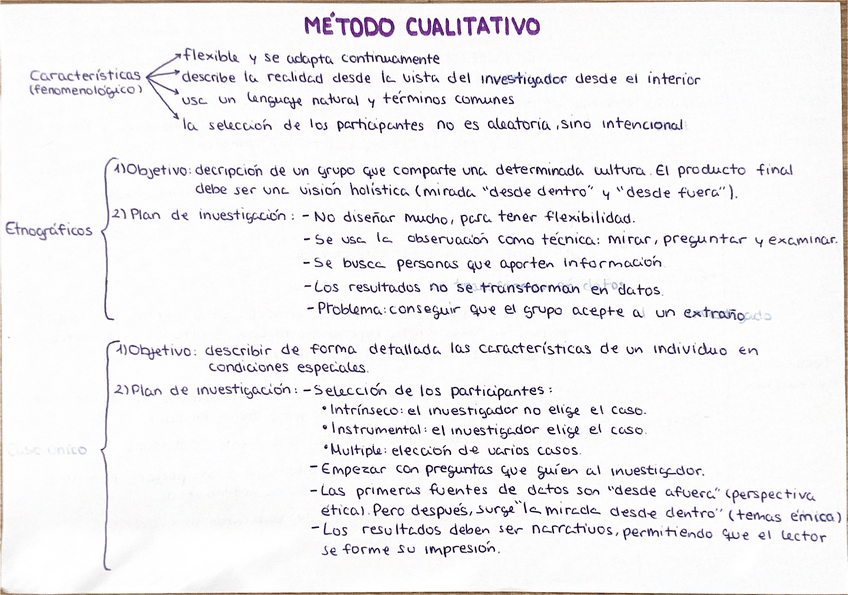 MÉTODO CUALITATIVO
flexible y se adapta continuamente
Características
(fenomenológico)
describe la realidad desde la vista del investigador desde el interior
usa un lenguaje natural y términos comunes
la selección de los participantes no es aleatoria, sino intencional
1) Objetivo: decripción de un grupo que comparte una determinada cultura. El producto final
debe ser una visión holística (mirada "desde dentro" y "desde fuera").
Etnográficos
2) Plan de investigación: - No diseñar mucho, para tener flexibilidad.
- Se usa la observación como técnica: mirar, preguntar y examinar.
- Se busca personas que aporten información.
- Los resultados no se transforman en datos.
- Problema: conseguir que el grupo acepte a un extraño
1) Objetivo: describir de forma detallada las características de un individuo en
condiciones especiales.
Caso único
2) Plan de investigación: - Selección de los participantes:
• Intrínseco: el investigador no elige el caso.
• Instrumental: el investigador elige el caso.
• Multiple: elección de varios casos.
- Empezar con preguntas que guíen al investigador.
- Las primeras fuentes de datos son "desde afuera" (perspectiva
ética). Pero después, surge "la mirada desde dentro" (temas émica)
- Los resultados deben ser narrativos, permitiendo que el lector
se forme su impresión.